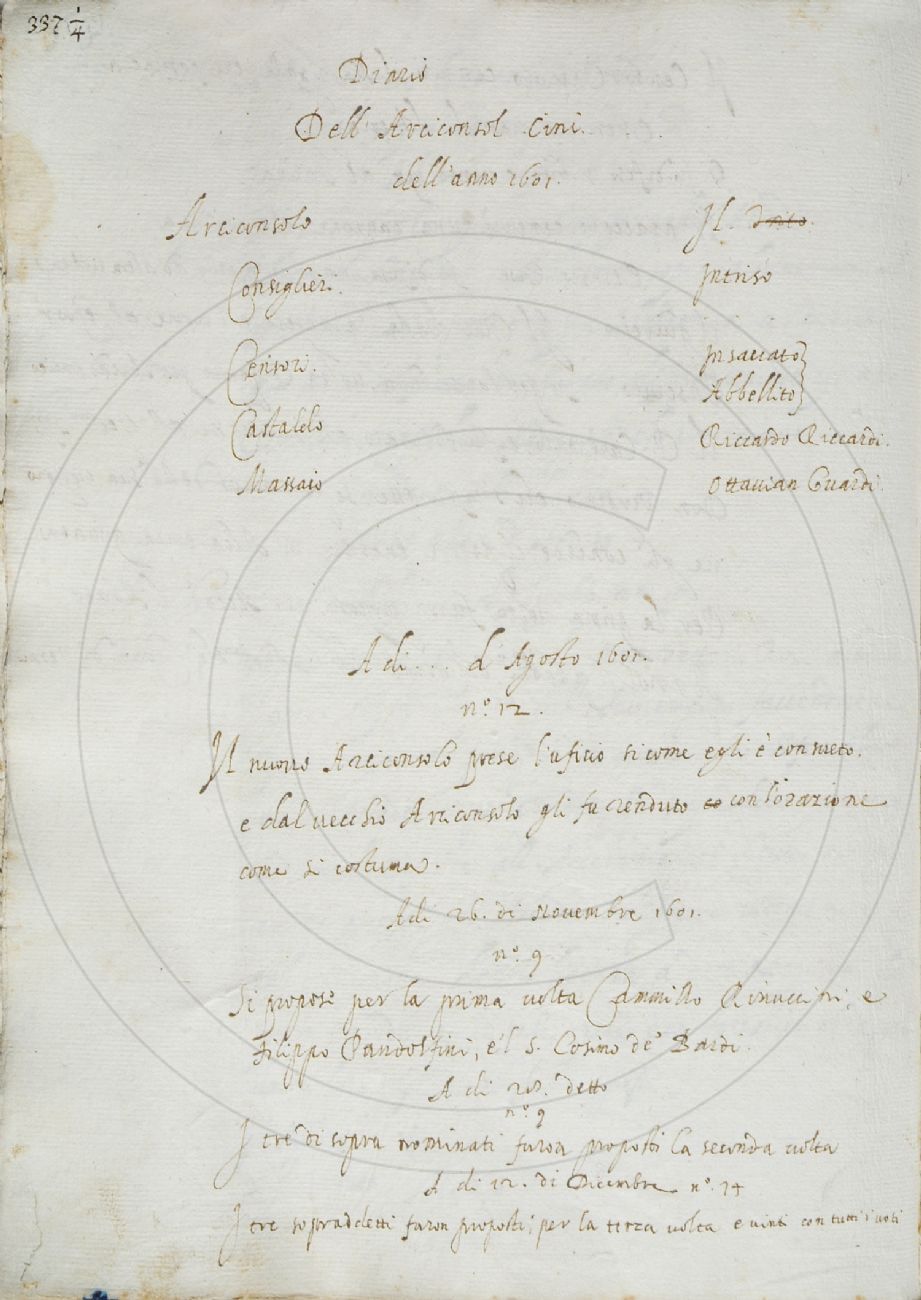 337 1/4
Diario
Dell'Arciconsol Cini.
dell'anno 1601.
Arciconsolo Il
Consiglieri. Intriso
Censori. Insaccato
Abbellito
Castaldo Riccardo Riccardi.
Massaio Ottavian Guardi
A di ... d'Agosto 1601.
n.º 12.
Il nuovo Arciconsolo prese l'uficio sicome egli è consueto.
e dal vecchio Arciconsolo gli fu renduto con l'orazione
come si costuma.
A di 26. di Novembre 1601.
n.º 9
Si propose per la prima volta Cammillo Rinuccini, e
Filippo Pandolfini, e'l S. Cosimo de' Bardi.
A di 28. detto
n.º 9
I tre di sopra nominati furon proposti la seconda volta
A di 12. di Dicembre n.º 14
I tre sopraddetti furon proposti per la terza volta e vinti con tutti i voti